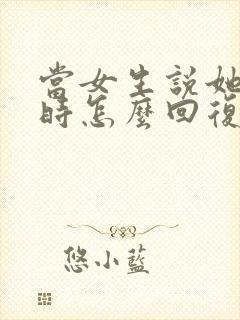 當女生說她
時怎麼回復
悠小藍